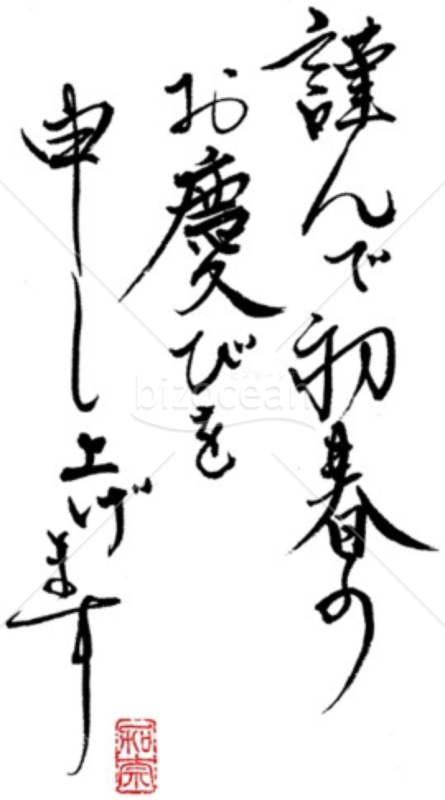 謹んで初春の
お慶びを
申し上げます
bizocean